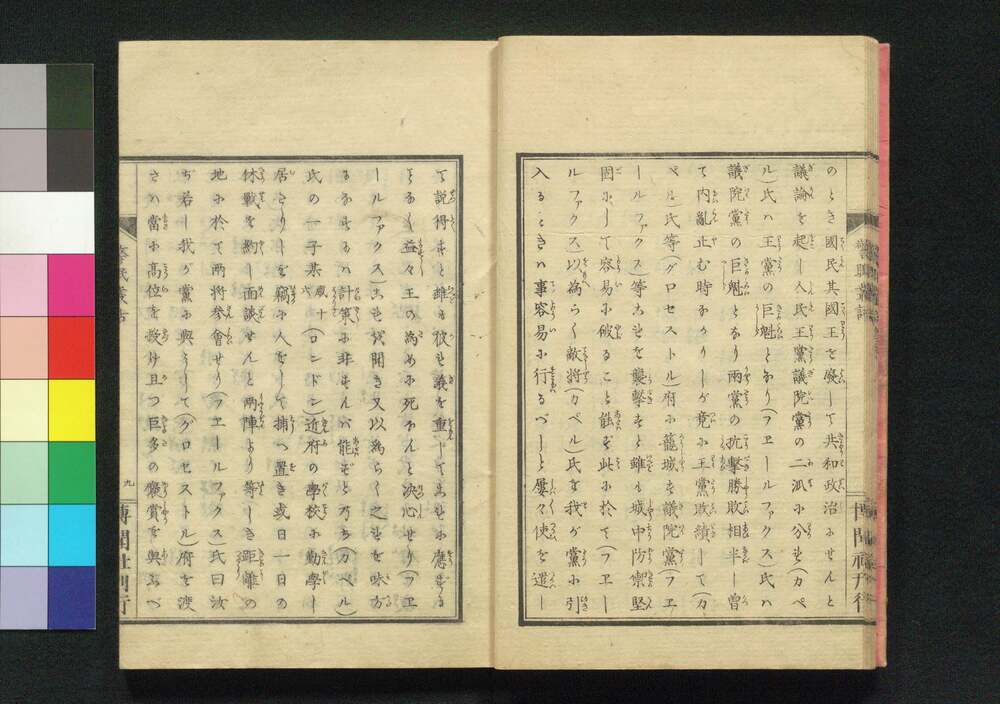 のとき國民其國王を廢して共和政治にせんと
議論を起し人民王黨議院黨の二派に分る(カペ
ル)氏ハ王黨の巨魁となり(フエールファクス)氏ハ
議院黨の巨魁となり兩黨の抗擊勝敗相半し曾
て内亂止む時なかりしが竟に王黨敗績して(カ
ペル)氏等(グロセストル)府に籠城す議院黨(フエ
ールファクス)等これを襲擊すと雖も城中防禦堅
固にして容易に破ること能ず此に於て(フエー
ルファクス)以為らく敵將(カペル)氏を我が黨に引
入るときハ事容易に行るべしと屢々使を遣し
て説得すと雖も彼れ義を重じてこれに應ぜざる
のみなく益々王の為めに死なんと決心せり(フエ
ールファクス)これを伐聞き又以為らく之れを味方
計策に非ずんバ能ずと乃ち(カペル)
氏の一子某歳十六(ロンドン)近府の學校に勤學し
居たりしを竊に人をして捕へ置き或日一日の
休戰を約し面談せんと兩陣より等しき距離の
地に於て兩將參會せり(フエールファクス)氏曰汝
ぢ若し我が黨に與うして(グロセストル)府を渡
さバ當に高位を授け且つ巨多の褒賞を與ふべ
九
博聞社刊行